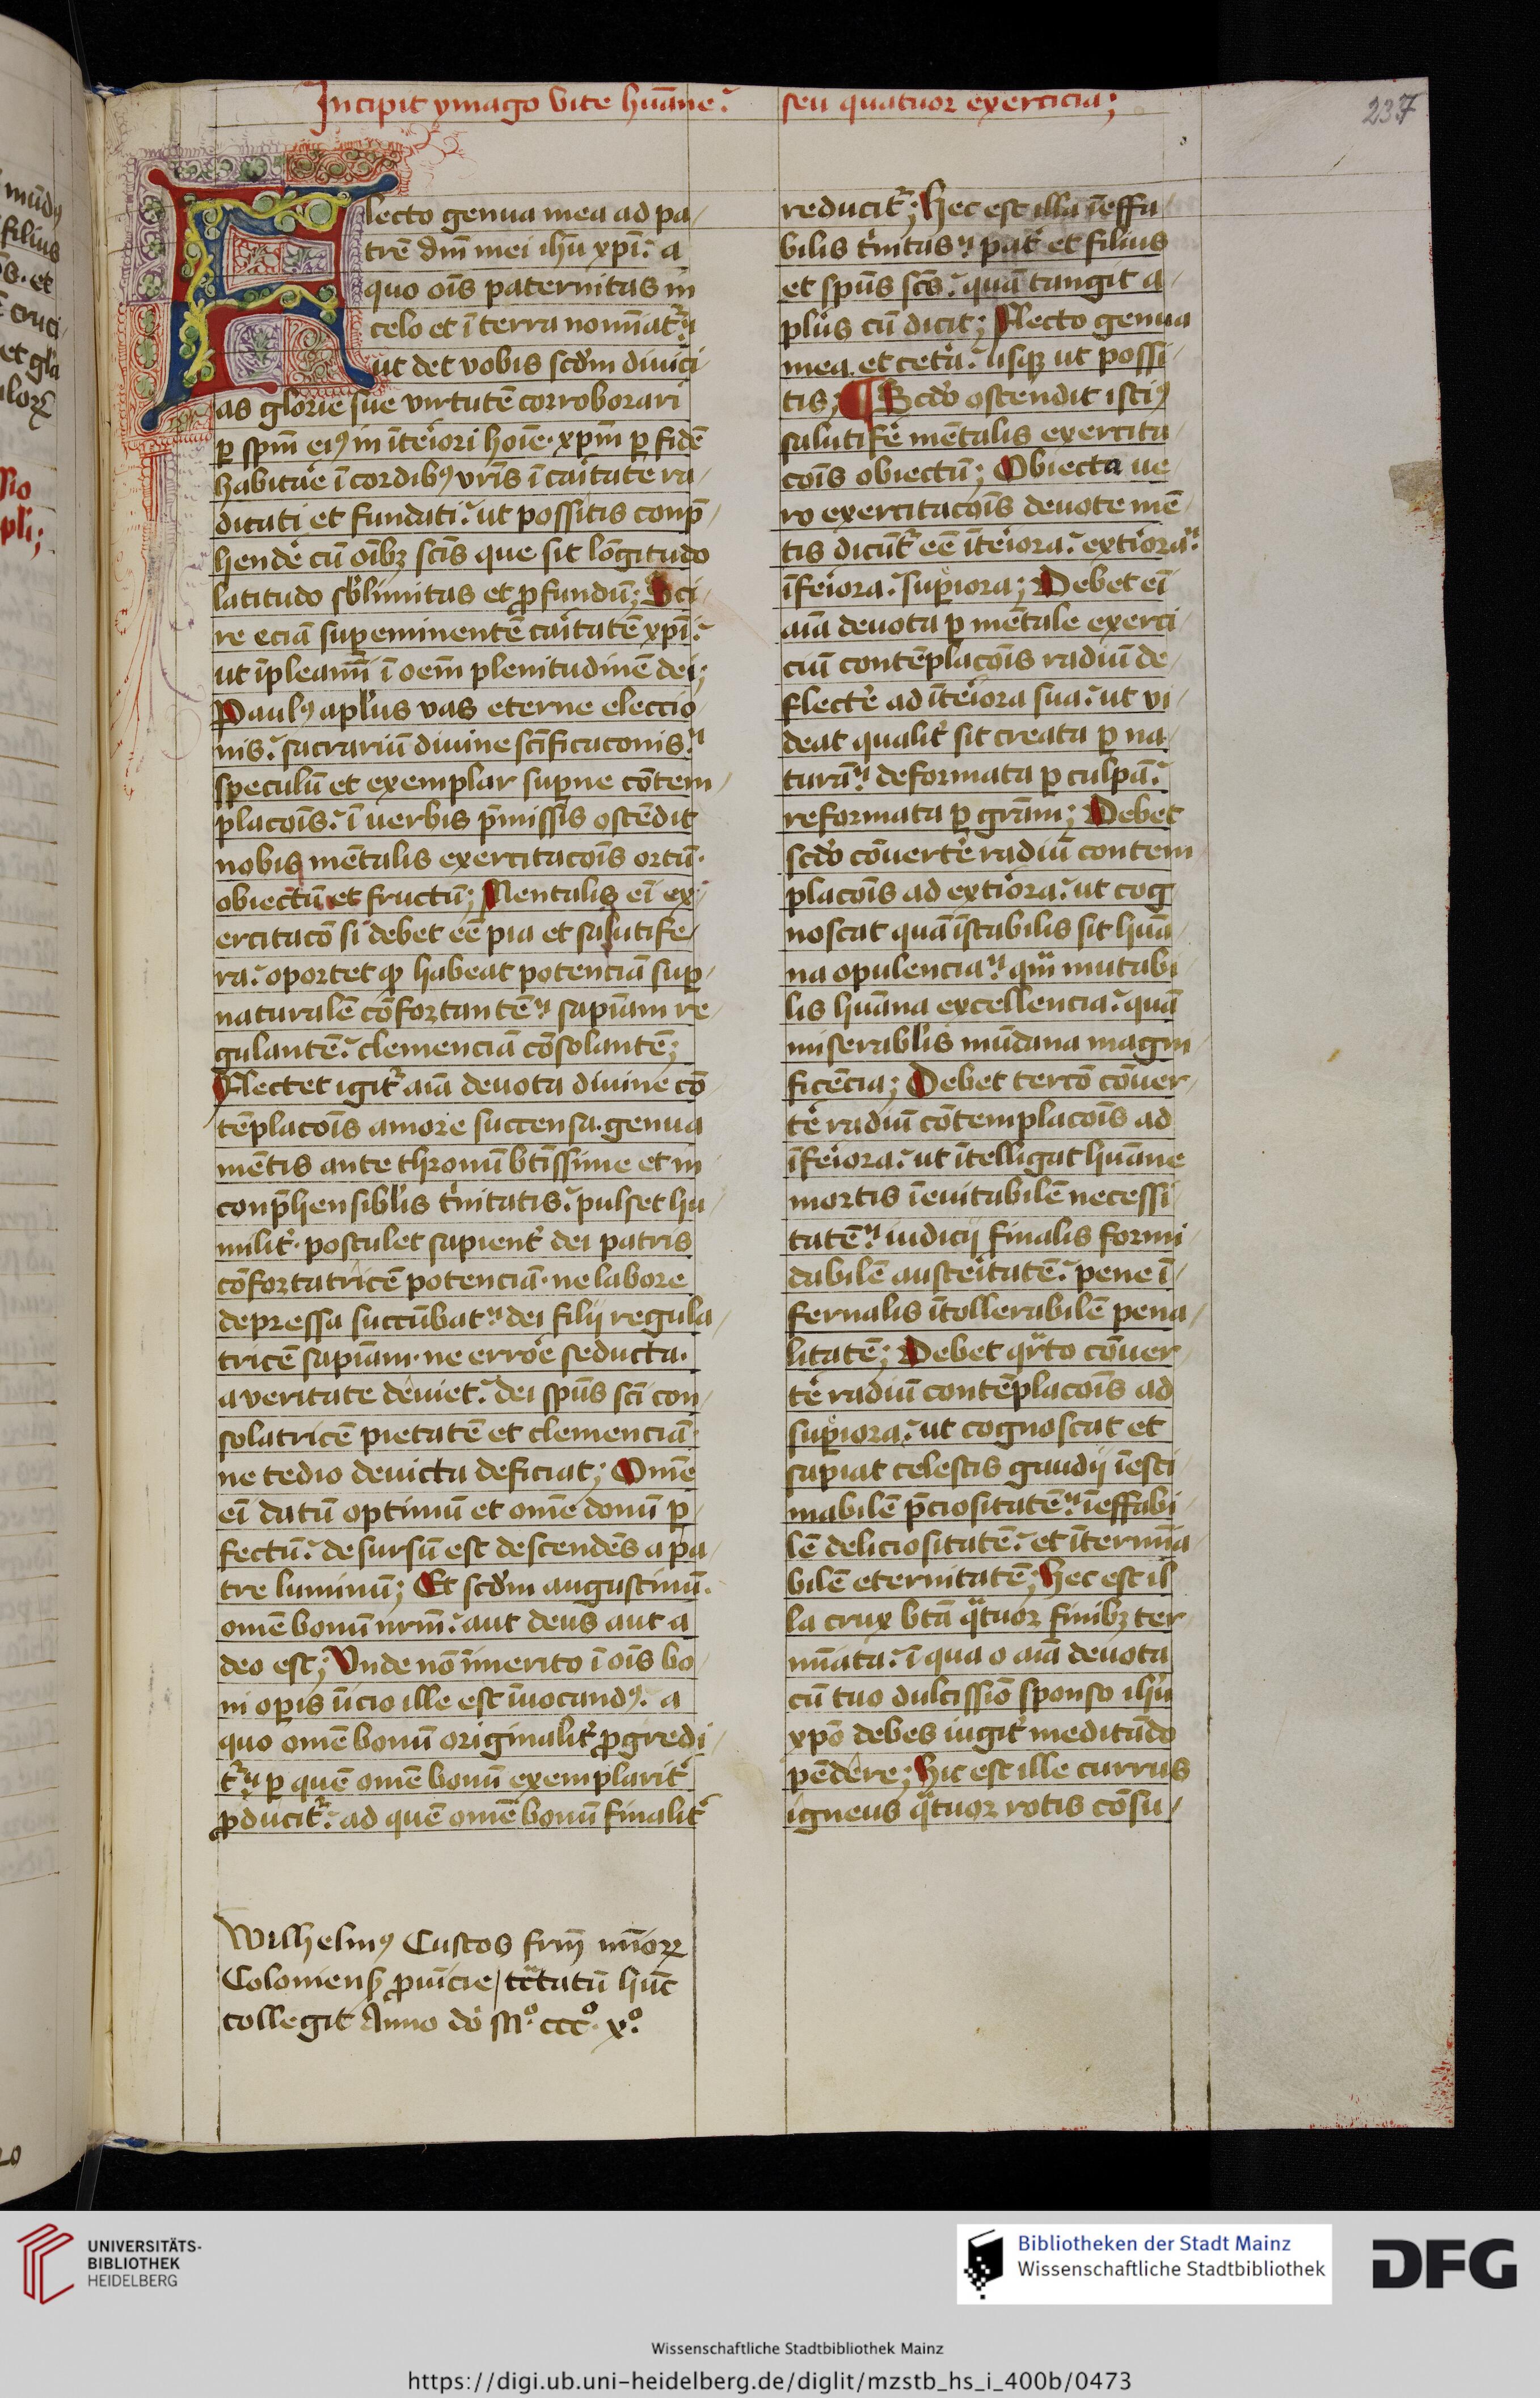 Incipit ymago vite hūane: seu quatuor exercicia;
237
Flecto genua mea ad pa/
trē dn̄i mei ihū xp̄i: a
quo oīs paternitas in
celo et ī terra noīat᷑:
ut det vobis scd̄m diuici
as glorie sue virtutē corroborari
ꝑ spm̄ eiꝰ in īteͥiori hoīe. xpm̄ ꝑ fidē
habitaͤe ī cordibꝰ vrīs ī caͥitate ra/
dicati et fundati: ut possitis conp̄/
hendeͤ cū oībꝫ scīs que sit lōgitudo
latitudo sb̓limitas et ꝓfundū; Sci/
re eciā suꝑeminentē caͥitatē xp̄i:
ut īpleam̄ ī oem̄ plenitudinē dei;
Paulꝰ apl̓us vas eterne eleccio
nis: sacrariū diuine scīficacionis:
speculū et exemplar suꝑne cōtem/
placōis: ī uerbis p̄missis ostēdit
nobis mētalis exercitacōis ortū.
obiectū et fructū; Mentalis eī ex/
ercitacō si debet eē pia et salutife/
ra: oportet ꝙ habeat potenciā suꝑ/
naturalē cōfortantē: sapīam re/
gulantē: clemenciā cōsolantē;
Flectet igit᷑ aīa deuota diuine cō
tēplacōis amore succensa. genua
mētis ante thronū btīssime et in
conp̄hensibl̓is tͥnitatis: pulset hu/
milit᷑. postulet sapient᷑ dei patris
cōfortatricē potenciā. ne labore
depressa succūbat: dei filij regula/
tricē sapīam. ne erroͤe seducta.
a veritate deuiet: dei spūs scī con/
solatricē pietatē et clemenciā.
ne tedio deuicta deficiat; Omē
eī datū optimū et omē donū ꝑ/
fectū: desursū est descendēs a pa/
tre luminū; Et scd̄m augustinū.
omē bonū nrm̄: aut deus aut a
deo est; Vnde nō īmerito ī oīs bo/
ni oꝑis īicio ille est īuocandꝰ: a
quo omē bonū originalit᷑ ꝓgredi/
t᷑: ꝑ quē omē bonū exemplarit᷑
ꝓducit᷑: ad quē omē bonū finalit᷑
Wilhelmꝰ Custos frm̄ mīoꝝ
Coloniens̄ ꝓuīcie / tc̈tatū hūc
collegit Anno do M.º cccº. xº.
reducit᷑; Hec est illa īeffa
bilis tͥnitas: pat᷑ et filius
et spūs scs̄: quā tangit a/
pl̓us cū dicit; Flecto genua
mea et cetͤa: usqꝫ ut possi/
tis; ¶ Scd̓o ostendit istiꝰ
salutifeͤ mētalis exercita/
cōis obiectū; Obiecta ue
ro exercitacōis deuote mē
tis dicūt᷑ eē īteͥiora: extͥiora:
īfeͥiora: suꝑiora; Debet eī
aīa deuota ꝑ mētale exerci/
ciū contēplacōis radiū de/
flecteͤ ad īteͥiora sua: ut vi/
deat qualit᷑ sit creata ꝑ na
turā: deformata ꝑ culpā:
reformata ꝑ grām; Debet
scd̓o cōuerteͤ radiū contem
placōis ad extͥiora: ut cog
noscat quā īstabilis sit hūa/
na opulencia: qm̄ mutabi/
lis hūana excellencia: quā
miserabl̓is mūdana magni/
ficēcia; Debet tercō cōuer/
teͤ radiū cōtemplacōis ad
īfeͥiora: ut ītelligat hūane
mortis īeuitabilē necessi/
tatē: iudicij finalis formi/
dabilē austeͥitatē: pene ī/
fernalis ītollerabilē pena/
litatē; Debet qr̈to cōuer/
teͤ radiū contēplacōis ad
suꝑiora: ut cognoscat et
sapiat celestis gaudij īesti
mabilē p̄ciositatē: īeffabi/
lē deliciositatē: et īterm̄ia/
bilē eternitatē; Hec est il
la crux btā q̈tuor finibꝫ ter/
mīata: ī qua o aīa deuota
cū tuo dulcissiō sponso ihū
xpō debes iugit᷑ meditādo
pēdere; Hic est ille currus
igneus q̈tuor rotis cōsu/
UNIVERSITÄTS-
BIBLIOTHEK
HEIDELBERG
Bibliotheken der Stadt Mainz
Wissenschaftliche Stadtbibliothek
DFG
Wissenschaftliche Stadtbibliothek Mainz
https://digi.ub.uni-heidelberg.de/diglit/mzstb_hs_i_400b/0473